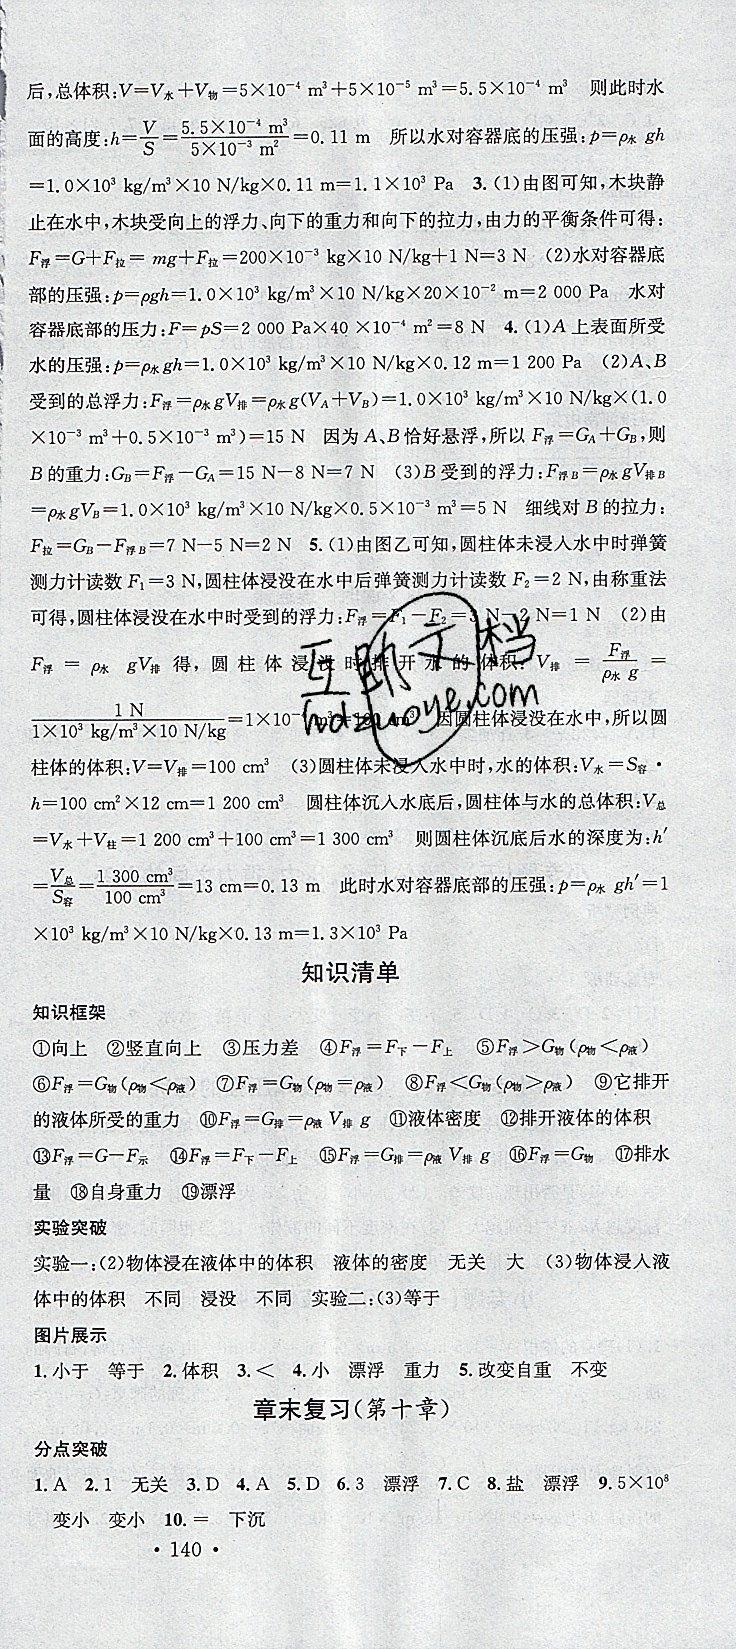 后,总体积:V=V水+V物=5×10⁻⁴ m³+5×10⁻⁵ m³=5.5×10⁻⁴ m³ 则此时水
面的高度:h=V/S=5.5×10⁻⁴ m³/5×10⁻³ m²=0.11 m 所以水对容器底的压强:p=ρ水 gh
=1.0×10³ kg/m³×10 N/kg×0.11 m=1.1×10³ Pa 3.(1)由图可知,木块静
止在水中,木块受向上的浮力、向下的重力和向下的拉力,由力的平衡条件可得:
F浮=G+F拉= mg+F拉=200×10⁻³ kg×10 N/kg+1 N=3 N (2)水对容器底
部的压强:p=ρgh=1.0×10³ kg/m³×10 N/kg×20×10⁻² m=2 000 Pa 水对
容器底部的压力:F=pS=2 000 Pa×40 ×10⁻⁴ m²=8 N 4.(1)A上表面所受
水的压强:p=ρ水gh=1.0×10³ kg/m³×10 N/kg×0.12 m=1 200 Pa (2)A、B
受到的总浮力:F浮=ρ水gV排=ρ水g(VA+VB)=1.0×10³ kg/m³×10 N/kg×(1.0
×10⁻³ m³+0.5×10⁻³ m³)=15 N 因为A、B恰好悬浮,所以F浮=GA+GB,则
B的重力:GB=F浮-GA=15 N-8 N=7 N (3)B受到的浮力:F浮B=ρ水gV排B
=ρ水gVB=1.0×10³ kg/m³×10 N/kg×0.5×10⁻³ m³=5 N 细线对B的拉力:
F拉=GB-F浮B=7 N-5 N=2 N 5.(1)由图乙可知,圆柱体未浸入水中时弹簧
测力计读数F1=3 N,圆柱体浸没在水中后弹簧测力计读数F2=2 N,由称重法
可得,圆柱体浸没在水中时受到的浮力:F浮=F1-F2=3 N-2 N=1 N (2)由
F浮=ρ水 gV排得,圆柱体浸没时排开水的体积:V排=F浮/ρ水 g=
1 N/1×10³ kg/m³×10 N/kg=1×10⁻⁴ m³=100 cm³ 因圆柱体浸没在水中,所以圆
柱体的体积:V=V排=100 cm³ (3)圆柱体未浸入水中时,水的体积:V水=S容·
h=100 cm²×12 cm=1 200 cm³ 圆柱体沉入水底后,圆柱体与水的总体积:V总
=V水+V柱=1 200 cm³+100 cm³=1 300 cm³ 则圆柱体沉底后水的深度为:h′
=V总/S容=1 300 cm³/100 cm²=13 cm=0.13 m 此时水对容器底部的压强:p=ρ水 gh′=1
×10³ kg/m³×10 N/kg×0.13 m=1.3×10³ Pa
知识清单
知识框架
①向上 ②竖直向上 ③压力差 ④F浮=F下-F上 ⑤F浮>G物(ρ物<ρ液)
⑥F浮=G物(ρ物<ρ液) ⑦F浮=G物(ρ物=ρ液) ⑧F浮<G物(ρ物>ρ液) ⑨它排开
的液体所受的重力 ⑩F浮=G排=ρ液 V排 g ⑪液体密度 ⑫排开液体的体积
⑬F浮=G-F示 ⑭F浮=F下-F上 ⑮F浮=G排=ρ液 V排 g ⑯F浮=G物 ⑰排水
量 ⑱自身重力 ⑲漂浮
实验突破
实验一:(2)物体浸在液体中的体积 液体的密度 无关 大 (3)物体浸入液
体中的体积 不同 浸没 不同 实验二:(3)等于
图片展示
1.小于 等于 2.体积 3.< 4.小 漂浮 重力 5.改变自重 不变
章末复习(第十章)
分点突破
1.A 2.1 无关 3.D 4.A 5.D 6.3 漂浮 7.C 8.盐 漂浮 9.5×10⁸
变小 变小 10.= 下沉
· 140 ·
互助文档
hdzuoye.com